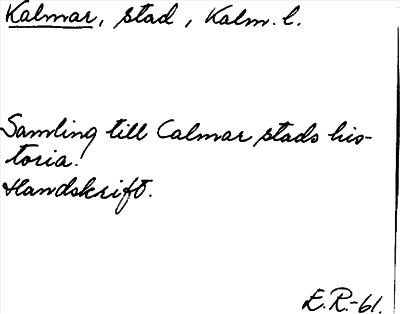 Kalmar, stad, Kalm. l.
Samling till Calmar stads his-
toria.
Handskrift.
E.R.-61.